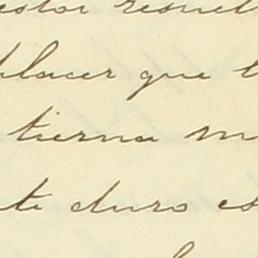 estoi resuel
placer que t
tierna m
te duro es